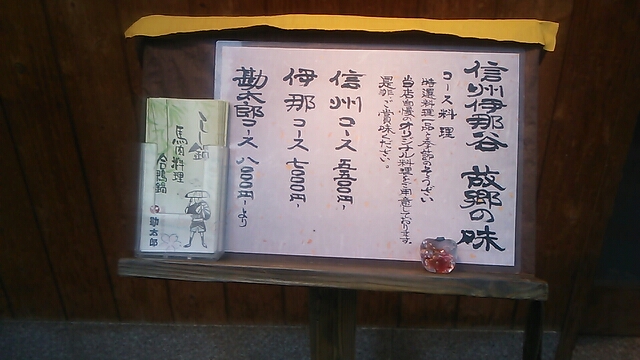 信州伊那谷 故郷の味
コース料理
特選料理一品と季節のそうざい
当店自慢のオリジナル料理をご用意しております。
是非ご賞味ください。
信州コース 五五〇〇円〜
伊那コース 七〇〇〇円〜
勘太郎コース 八〇〇〇円〜より
馬肉料理
合鴨鍋
勘太郎